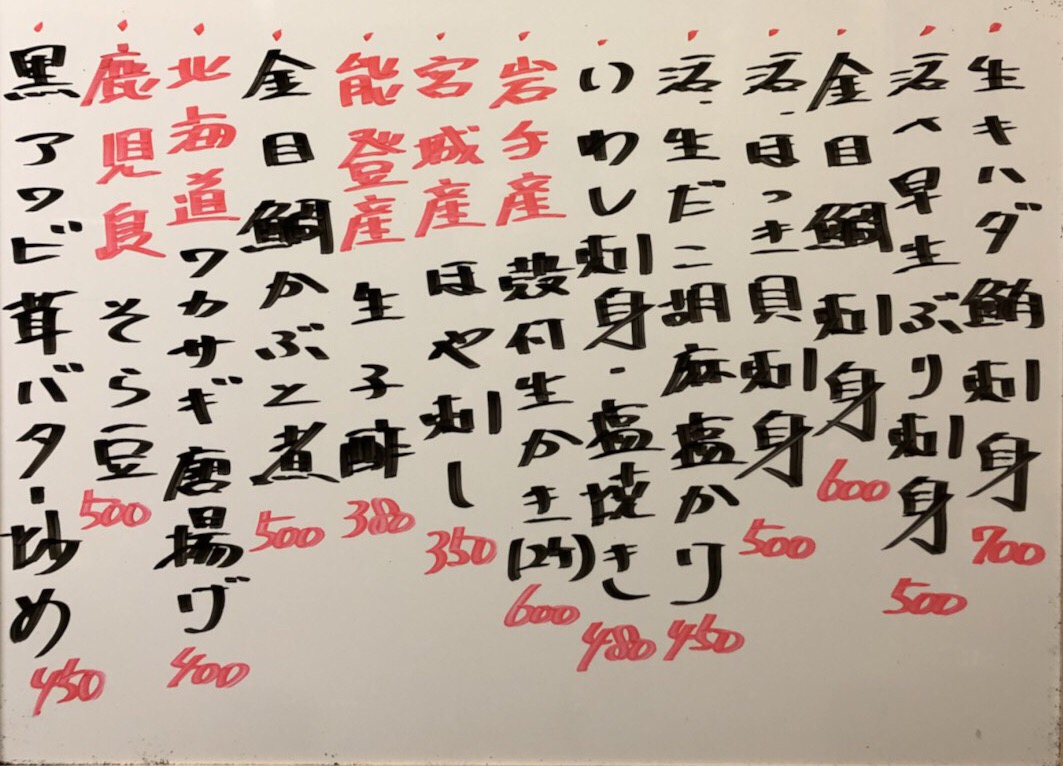 生キハダ鮪刺身 700
活〆早生ぶり刺身 500
金目鯛刺身 600
活ほっき貝刺身 500
活生だこ胡麻塩かり 450
いわし刺身・塩焼き 480
岩手産 殻付生かき(2ケ) 600
宮城産 ほや刺し 350
能登産 生子酢 380
金目鯛かぶと煮 500
北海道ワカサギ唐揚げ 400
鹿児良 そら豆 500
黒アワビ茸バター炒め 450